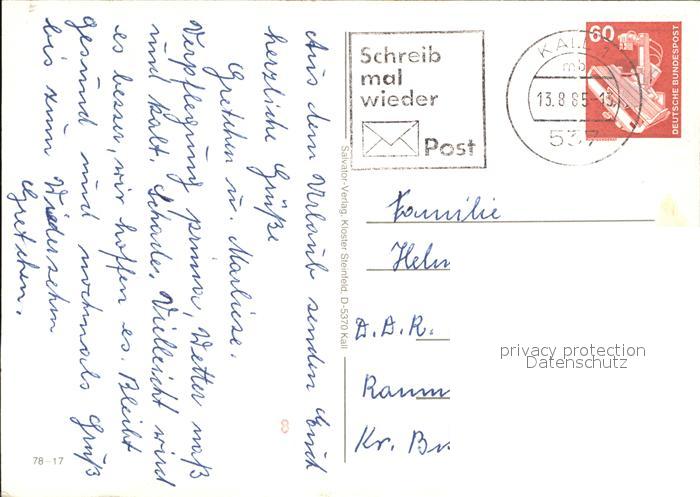 Aus dem Urlaub senden Euch
herzliche Grüße
Gretchen u. Marliese.
Verpflegung prima, Wetter naß
und kalt. Schade. Vielleicht wird
es besser, wir hoffen es. Bleibt
gesund und nochmals Gruß
bis zum Wiedersehn
Gretchen.
78-17
Salvator-Verlag, Kloster Steinfeld, D-5370 Kall
Schreib
mal
wieder
Post
KALL 1
mb
13.8.85-15
537
60
DEUTSCHE BUNDESPOST
Familie
Helm
Raum
Kr. Br.
privacy protection
Datenschutz